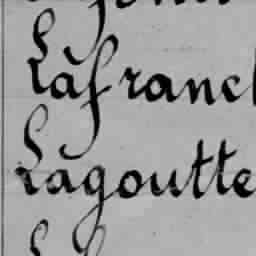 Lafrancl
Lagoutte